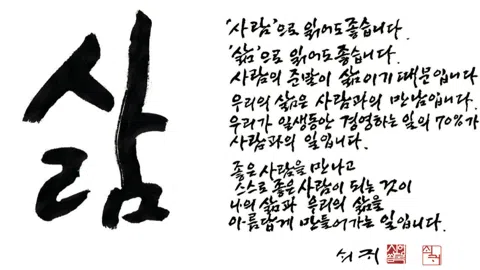 삶
'사람'으로 읽어도 좋습니다.
'삶'으로 읽어도 좋습니다.
사람의 준말이 삶이기 때문입니다
우리의 삶은 사람과의 만남입니다.
우리가 일생동안 경영하는 일의 70%가
사람과의 일입니다.
좋은 사람을 만나고
스스로 좋은 사람이 되는 것이
나의 삶과 우리의 삶을
아름답게 만들어가는 일입니다.
쇠귀